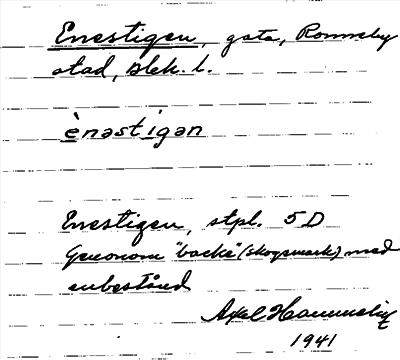 Enestigen, gata, Ronneby
stad, Blek. l.
ènəstigən
Enestigen, stpl. 5D
Genonom "backe" (skogsmark) med
enbestånd
Axel
1941